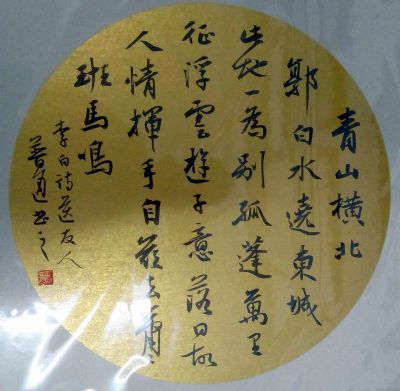 青山横北
郭白水遶東城
此地一為别孤蓬萬里
征浮雲遊子意落日故
人情揮手自茲去蕭〻
班馬鳴
李白詩送友人
普通书之